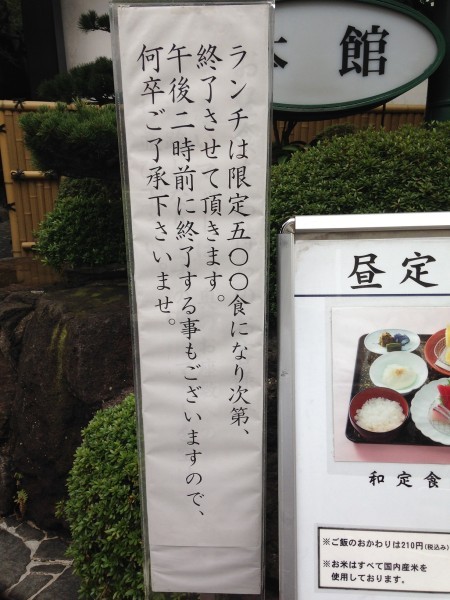 ランチは限定五〇〇食になり次第、
終了させて頂きます。
午後二時前に終了する事もございますので、
何卒ご了承下さいませ。
館
昼定
和定食
※ご飯のおかわりは210円(税込み)
※お米はすべて国内産米を
使用しております。